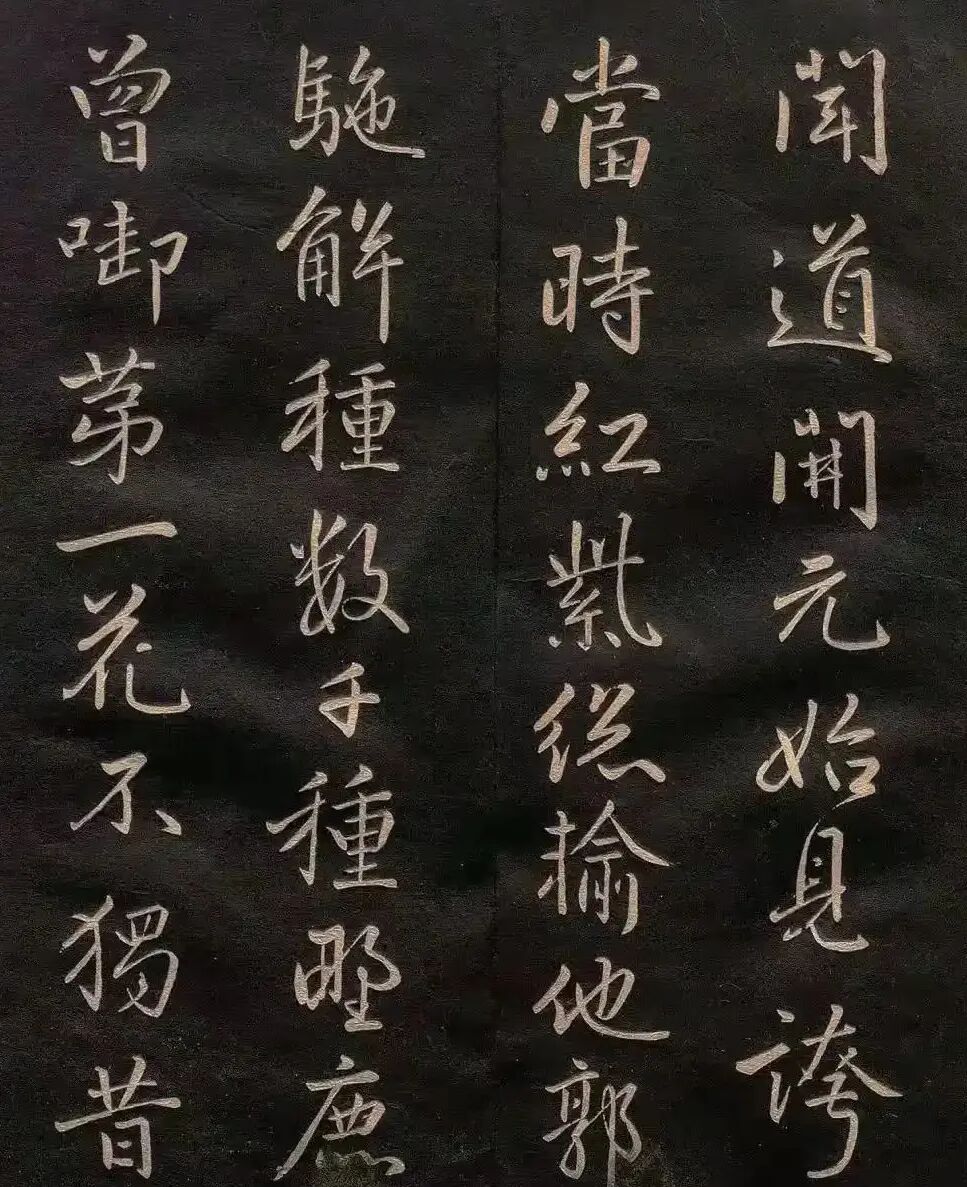 聞道開元始見誇
當時紅紫總揄他郭
駞解種數千種野鹿
曾啣第一花不獨昔